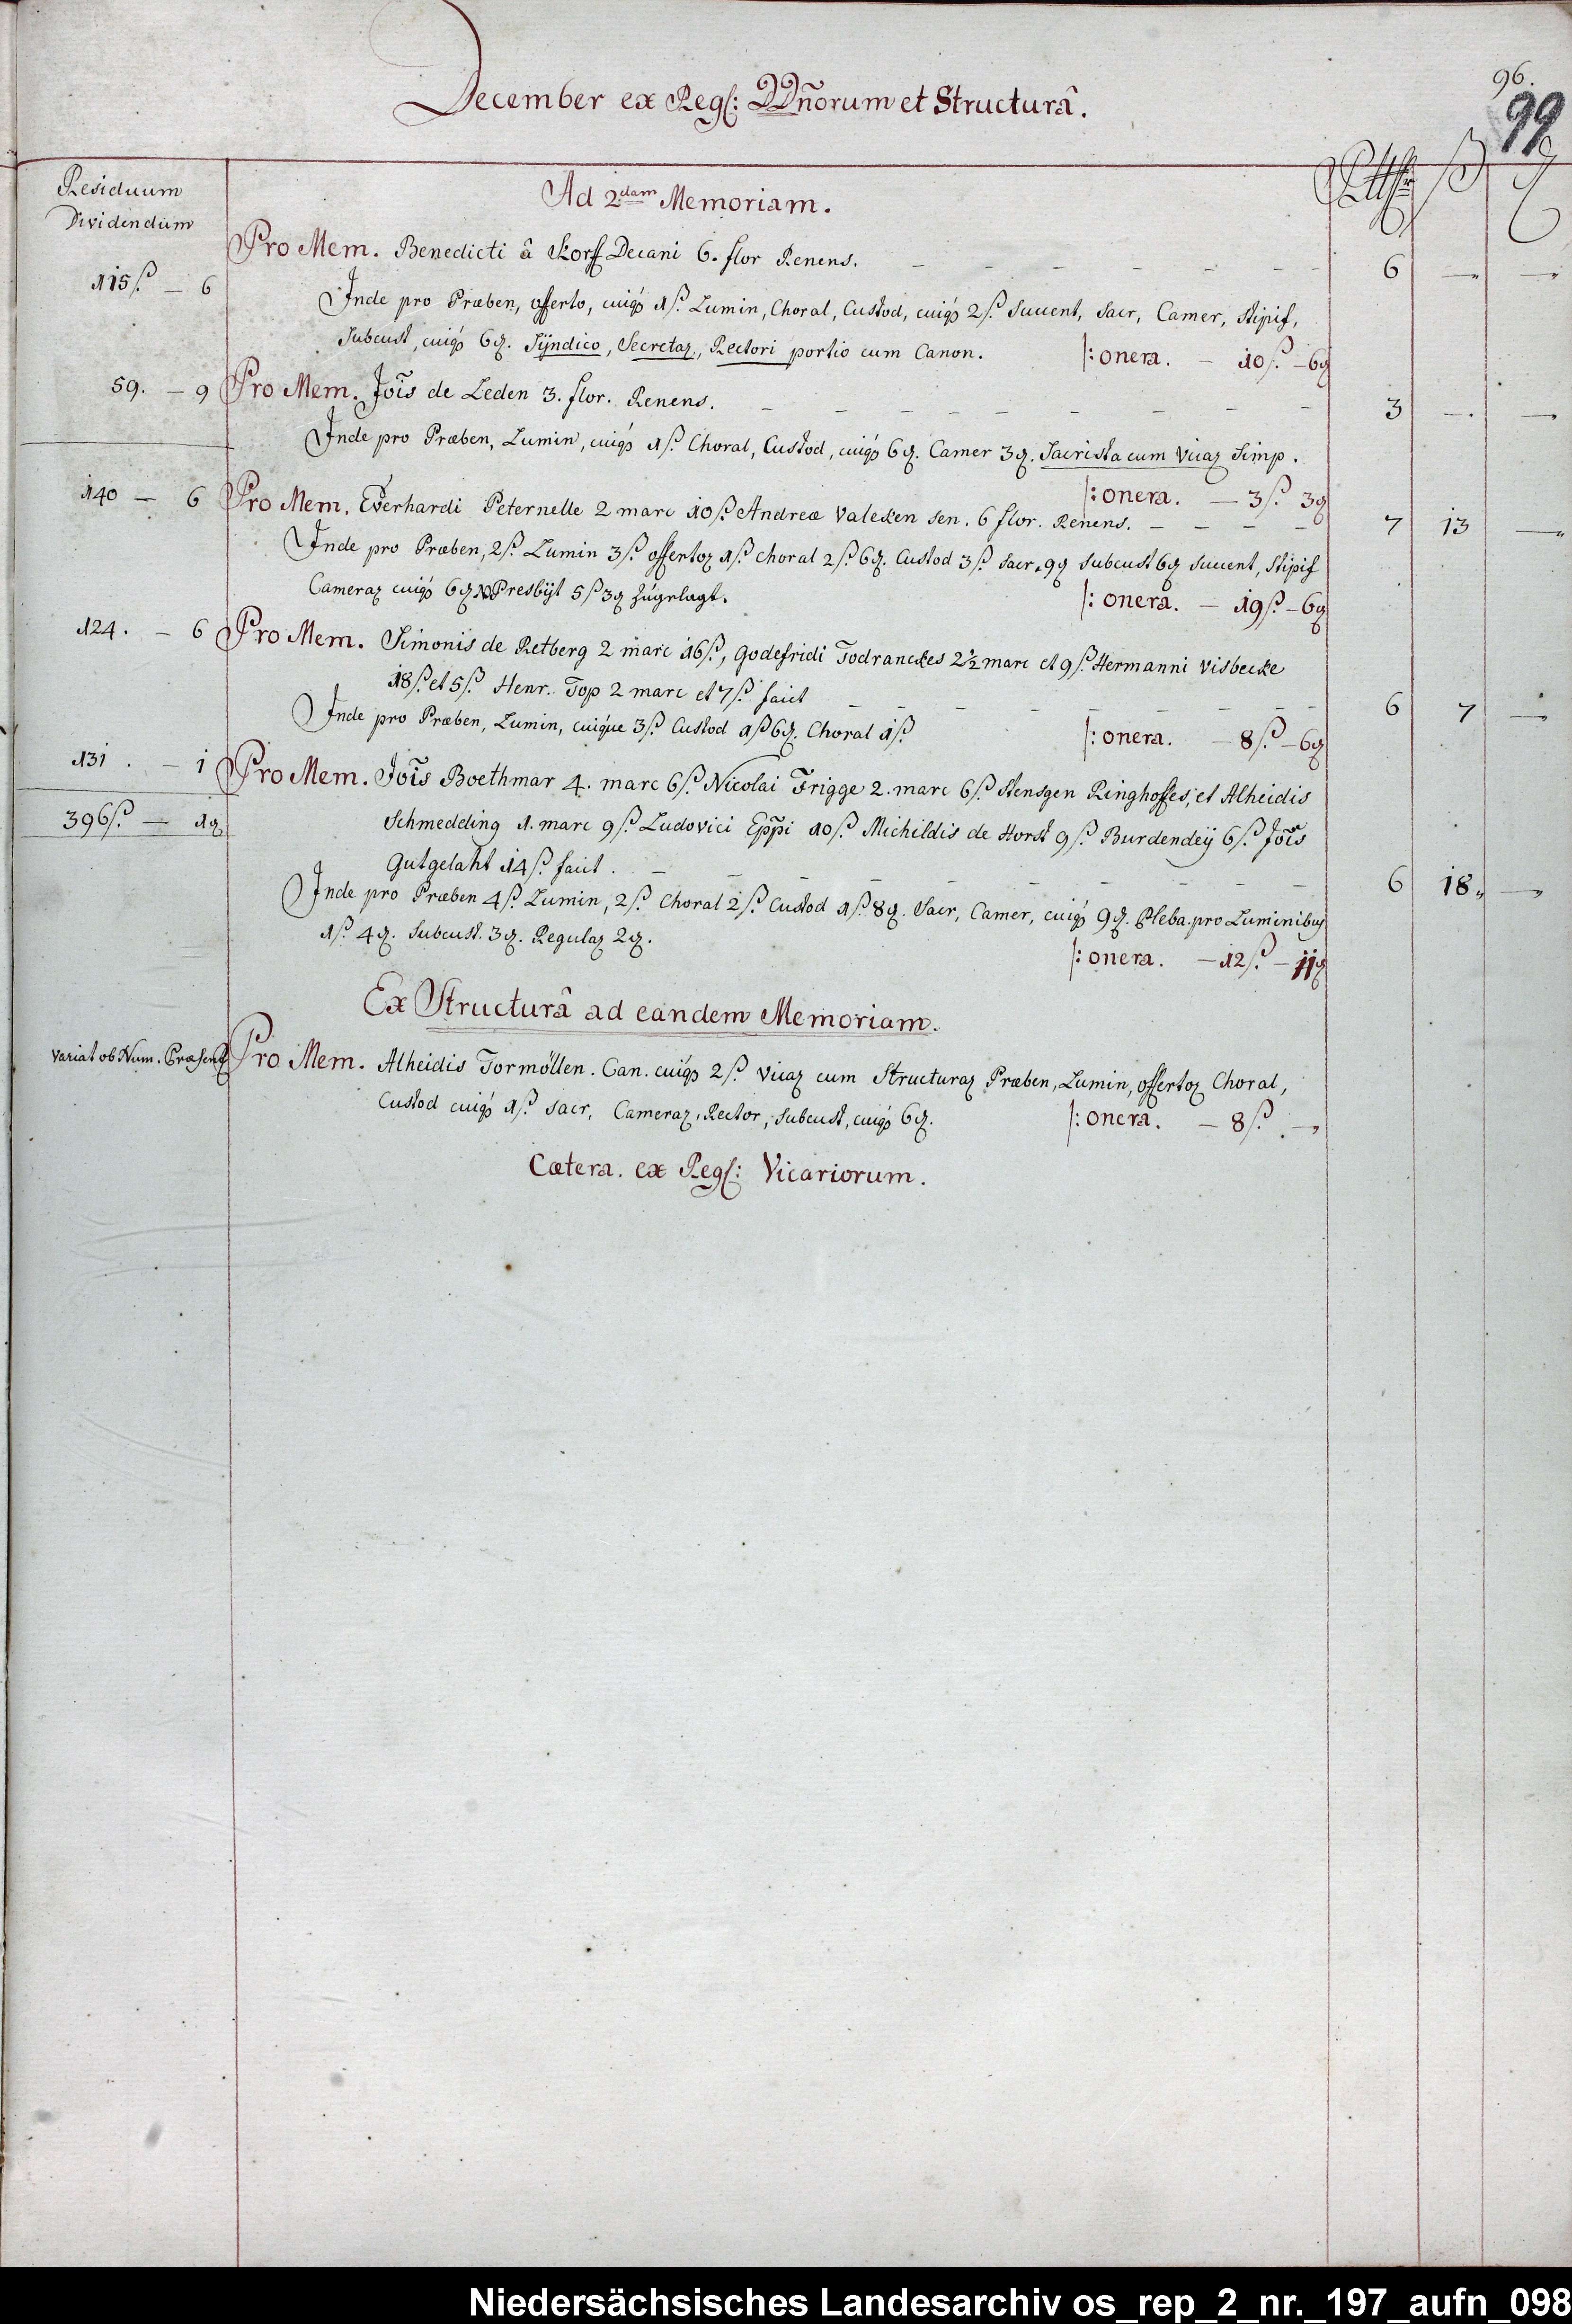 96.
99
December ex Regs: DDñorum et Structurâ.
Residuum
Dividendum
Rthlr ß ₰
Ad 2dam Memoriam.
Pro Mem. Benedicti â Korff Decani 6. flor Renens. — — — — — — 6 — —
115ß. — 6
Inde pro Præben, offerto, cuiqs 1ß. Lumin, Choral, Custod, cuiqs 2ß. Succent, Sacr, Camer, Stipif,
Subcust, cuiqs 6₰. Sÿndico, Secretar, Rectori portio cum Canon. |: onera. — 10ß. — 6₰
59. — 9 Pro Mem. Jois de Leden 3. flor. Renens. — — — — — — — — 3 — —
Inde pro Præben, Lumin, cuiqs 1ß. Choral, Custod, cuiqs 6₰. Camer 3₰. Sacrista cum Vicar Simp.
|: onera. — 3ß. 3₰
140 — 6 Pro Mem. Everhardi Peternelle 2 marc 10ß. Andreæ Valeken sen. 6 flor. Renens. — — — — 7 13 —
Inde pro Præben, 2ß. Lumin 3ß. offertor 1ß. choral 2ß. 6₰. Custod 3ß. Sacr. 9₰ Subcust 6₰ Succent, Stipif
Camerar cuiqs 6₰ Presbÿt 5ß 3₰ zúgelagt. |: onera. — 19ß. — 6₰
124. — 6 Pro Mem. Simonis de Retberg 2 marc 16ß., Godefridi Todranckes 2½ marc et 9ß. Hermanni Visbecke
18ß. et 5ß. Henr. Top 2 marc et 7ß. facit — — — — — — — 6 7 —
Inde pro Præben, Lumin, cuique 3ß. Custod 1ß 6₰. Choral 1ß. |: onera. — 8ß. — 6₰
131. — 1 Pro Mem. Jois Boethmar 4. marc 6ß. Nicolai Frigge 2. marc 6ß. Stensgen Ringhoffes, et Alheidis
396ß. — 1₰
Schmedding 1. marc 9ß. Ludovici Eppi 10ß. Michildis de Horst 9ß. Burdendeÿ 6ß. Jois
Gutgelaht 14ß. facit. — — — — — — — — — 6 18 —
Inde pro Præben 4ß. Lumin, 2ß. Choral 2ß. Custod 1ß. 8₰. Sacr, Camer, cuiqs 9₰. Pleba. pro Luminibus
1ß. 4₰. Subcust. 3₰. Regular 2₰. |: onera. — 12ß. — 11₰
Ex Structurâ ad eandem Memoriam.
Variat ob Num. Præsent
Pro Mem. Alheidis Tormöllen. Can. cuiqs 2ß. Vicar cum Structurar Præben, Lumin, offertor Choral,
Custod cuiqs 1ß. Sacr, Camerar, Rector, Subcust, cuiqs 6₰. |: onera. — 8ß. —
Cætera. ex Regs: Vicariorum.
Niedersächsisches Landesarchiv os_rep_2_nr._197_aufn_098